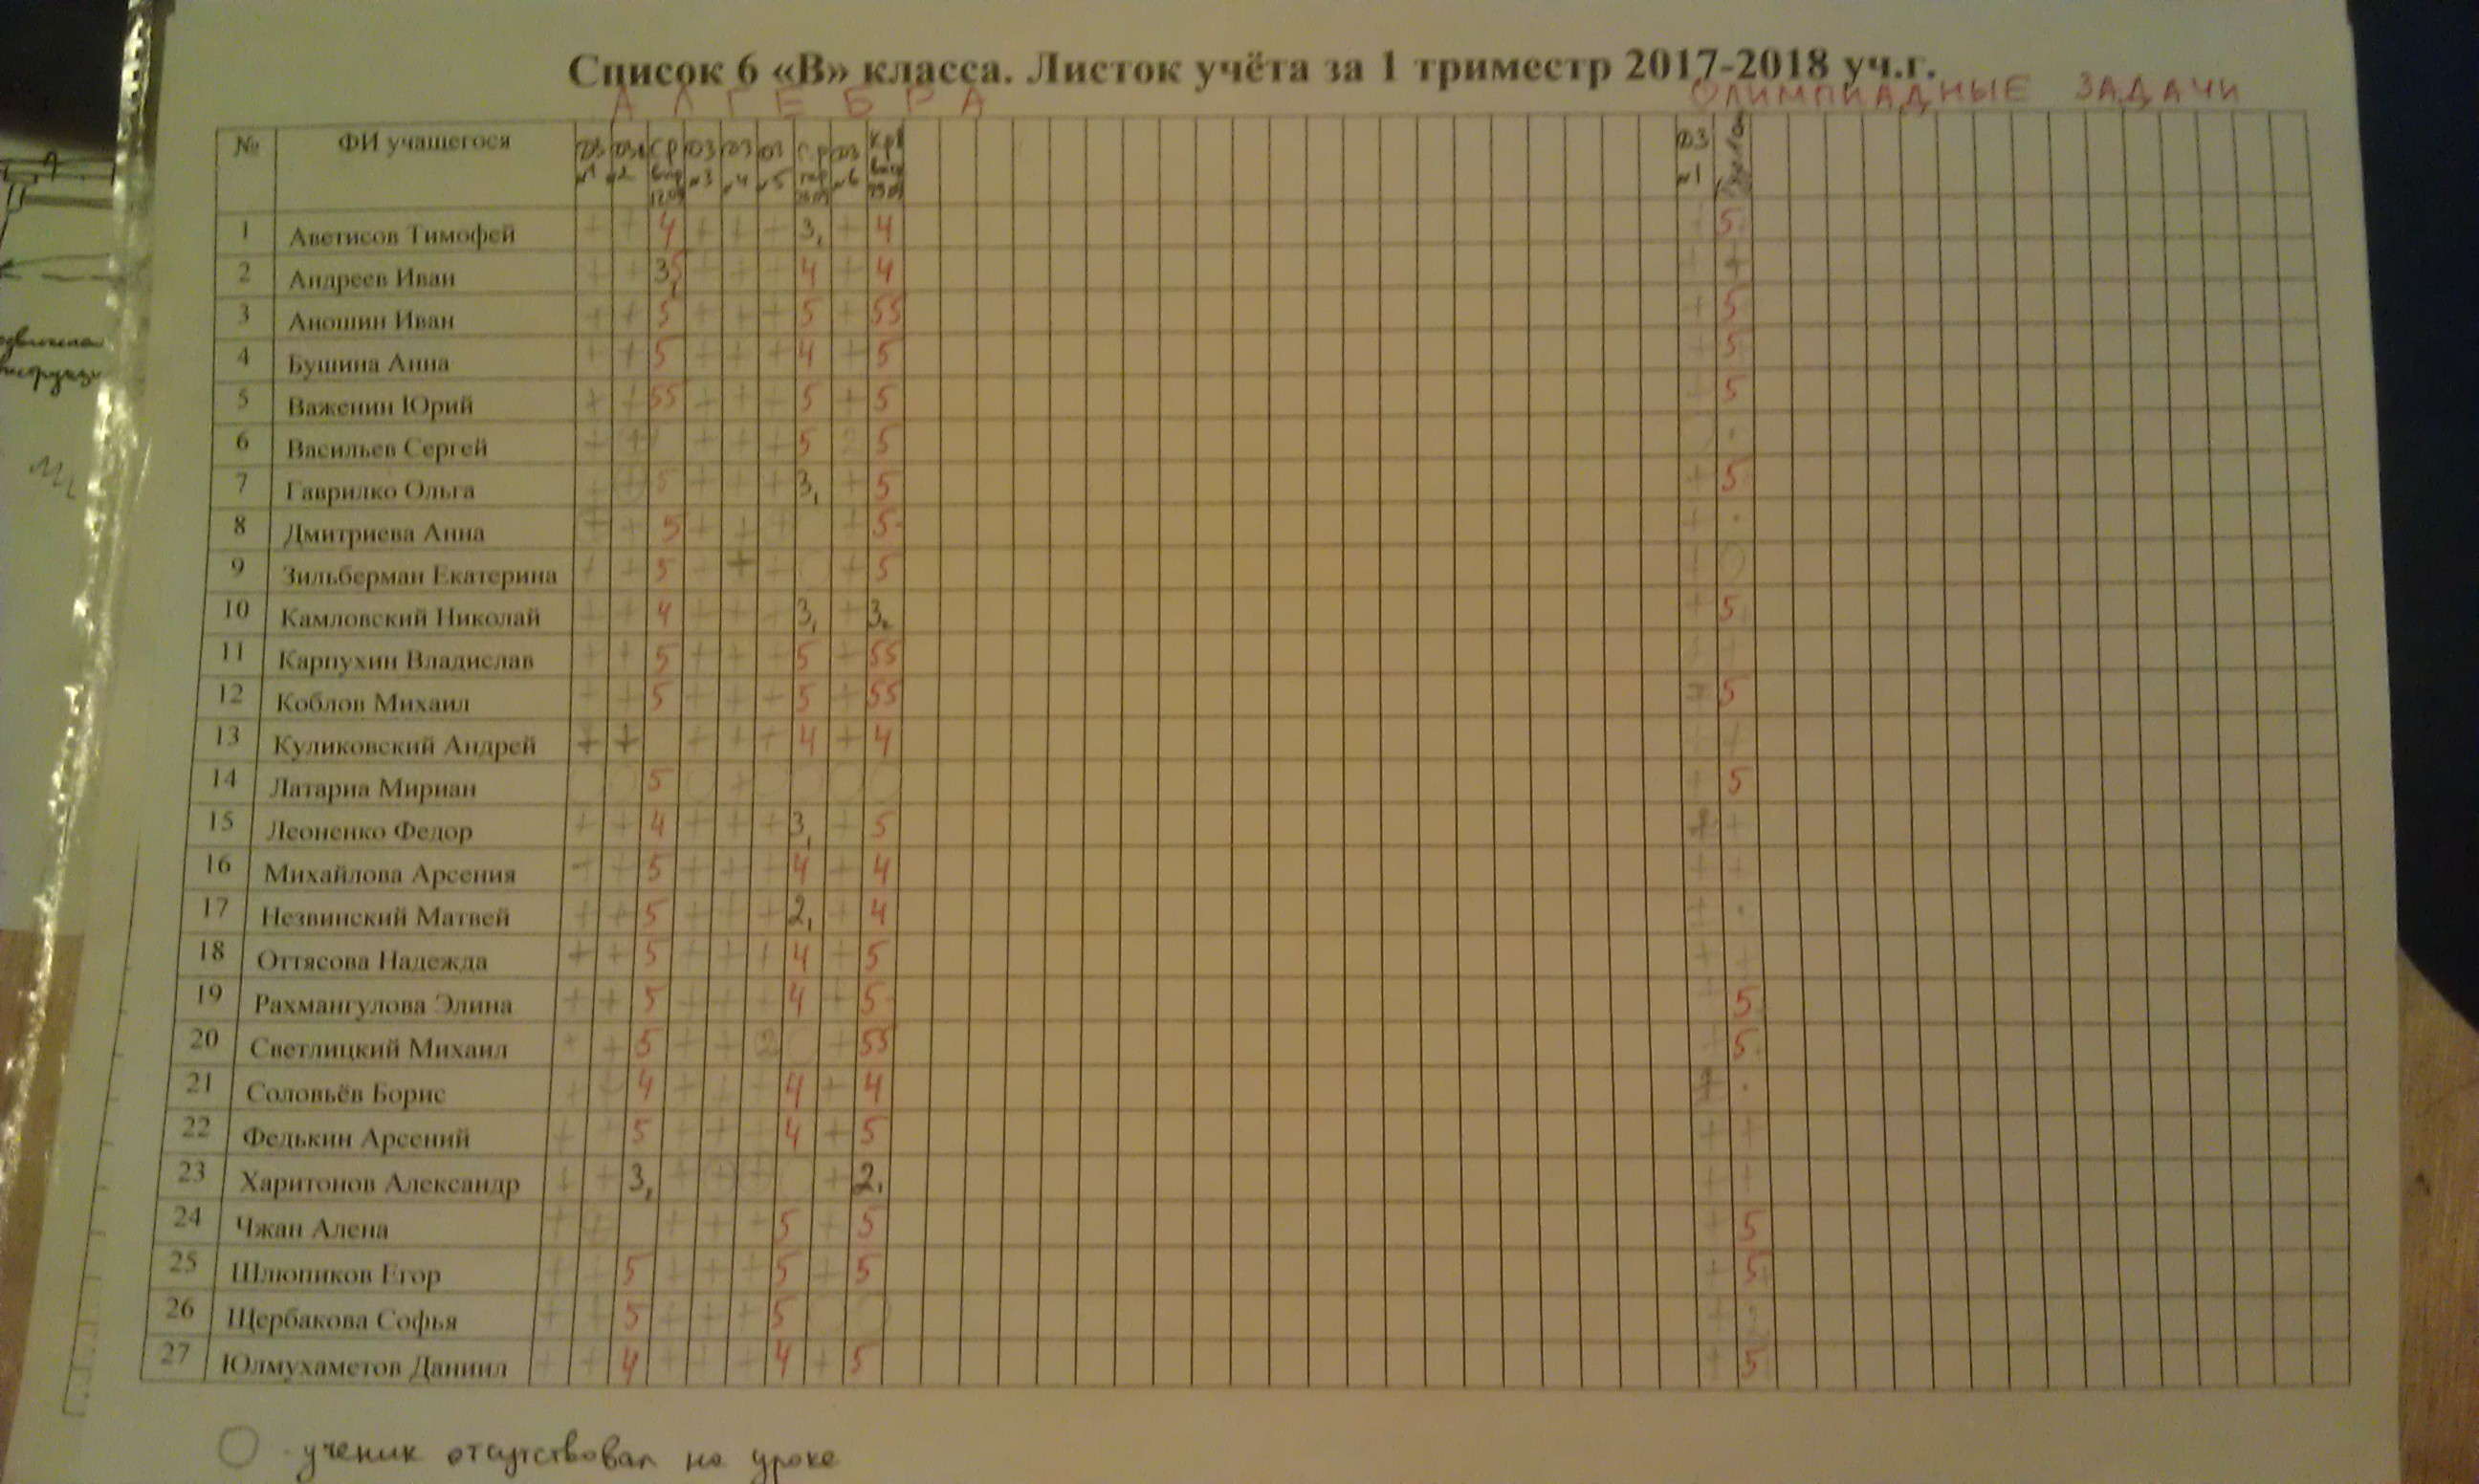 Список 6 «В» класса. Листок учёта за 1 триместр 2017-2018 уч.г.
АЛГЕБРА ОЛИМПИАДНЫЕ ЗАДАЧИ
№ ФИ учащегося ДЗ №1 ДЗ №2 СР ДЗ №3 ДЗ №4 ДЗ №5 С.р ДЗ №6 Кр ДЗ №1
1 Аветисов Тимофей + + 4 + + + 3, + 4 + 5
2 Андреев Иван + + 3, 5 + + + 4 + 4 + +
3 Аношин Иван + + 5 + + + 5 + 55 + 5
4 Бушина Анна + + 5 + + + 4 + 5 + 5
5 Важенин Юрий + + 55 + + + 5 + 5 + 5
6 Васильев Сергей + + + + + 5 2 5 .
7 Гаврилко Ольга + + 5 + + + 3, + 5 + 5
8 Дмитриева Анна + + 5 + + + + 5- + .
9 Зильберман Екатерина + + 5 + + + + 5 +
10 Камловский Николай + + 4 + + + 3, + 3, + 5
11 Карпухин Владислав + + 5 + + + 5 + 55 + +
12 Коблов Михаил + + 5 + + + 5 + 55 + 5
13 Куликовский Андрей + + + + + 4 + 4 + +
14 Латария Мириан 5 + + 5
15 Леоненко Федор + + 4 + + + 3, + 5 + +
16 Михайлова Арсения + + 5 + + + 4 + 4 + +
17 Незвинский Матвей + + 5 + + + 2, + 4 + .
18 Оттясова Надежда + + 5 + + + 4 + 5 + +
19 Рахмангулова Элина + + 5 + + + 4 + 5- + 5
20 Светлицкий Михаил + + 5 + + 2 + 55 + 5
21 Соловьёв Борис + + 4 + + + 4 + 4 + .
22 Федькин Арсений + + 5 + + + 4 + 5 + +
23 Харитонов Александр + + 3, + + + + 2, + +
24 Чжан Алена + + + + + 5 + 5 + 5
25 Шлюпиков Егор + + 5 + + + 5 + 5 + 5
26 Щербакова Софья + + 5 + + + 5 +
27 Юлмухаметов Даниил + + 4 + + + 4 + 5 + 5
- ученик отсутствовал на уроке